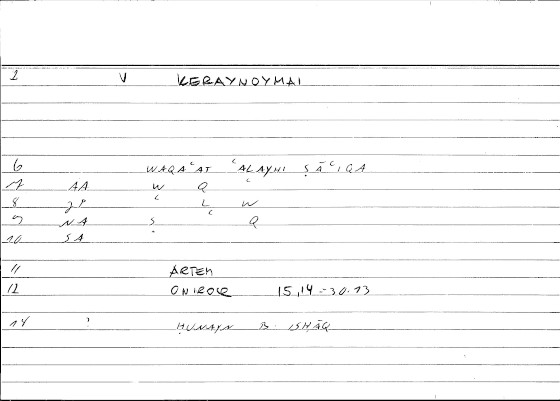 1 V KERAYNOYMAI
6 WAQAʿAT ʿALAYHI ṢĀʿIQA
7 AA W Q ʿ
8 JP ʿ L W
9 NA Ṣ ʿ Q
10 SA
11 ARTEM
12 ONIROCR 15,14 - 30.13
14 ? ḤUNAYN B. ISḤĀQ